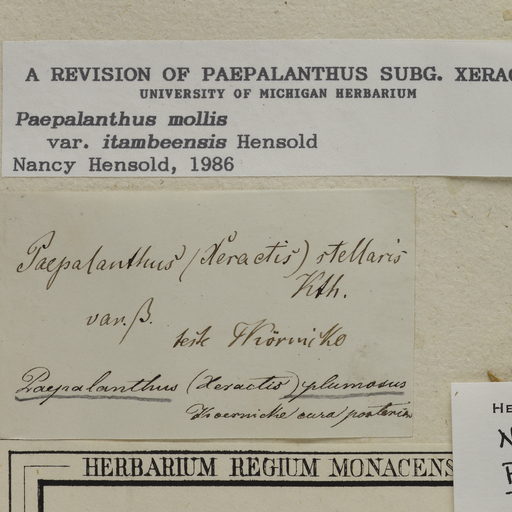 A REVISION OF PAEPALANTHUS SUBG. XERAC
UNIVERSITY OF MICHIGAN HERBARIUM
Paepalanthus mollis
var. itambeensis Hensold
Nancy Hensold, 1986
Paepalanthus (Xeractis) stellaris
Kth.
var. β.
teste Körnicke
Paepalanthus (Xeractis) plumosus
Koernicke cura posterior
HE
HERBARIUM REGIUM MONACENS